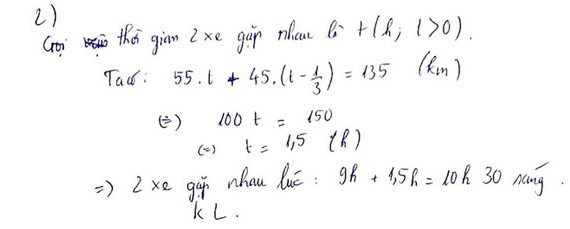 2)
Gọi thời gian 2 xe gặp nhau là t (h; t>0).
Ta có: 55.t + 45.(t - 1/3) = 135 (km)
(=) 100 t = 150
(=) t = 1,5 (h)
=) 2 xe gặp nhau lúc : 9h + 1,5h = 10h 30 sáng.
KL.